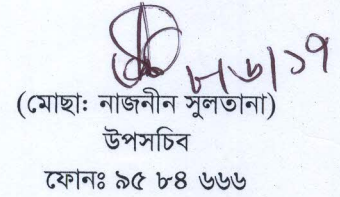 ৮/৬/১৭
(মোছা: নাজনীন সুলতানা)
উপসচিব
ফোনঃ ৯৫ ৮৪ ৬৬৬